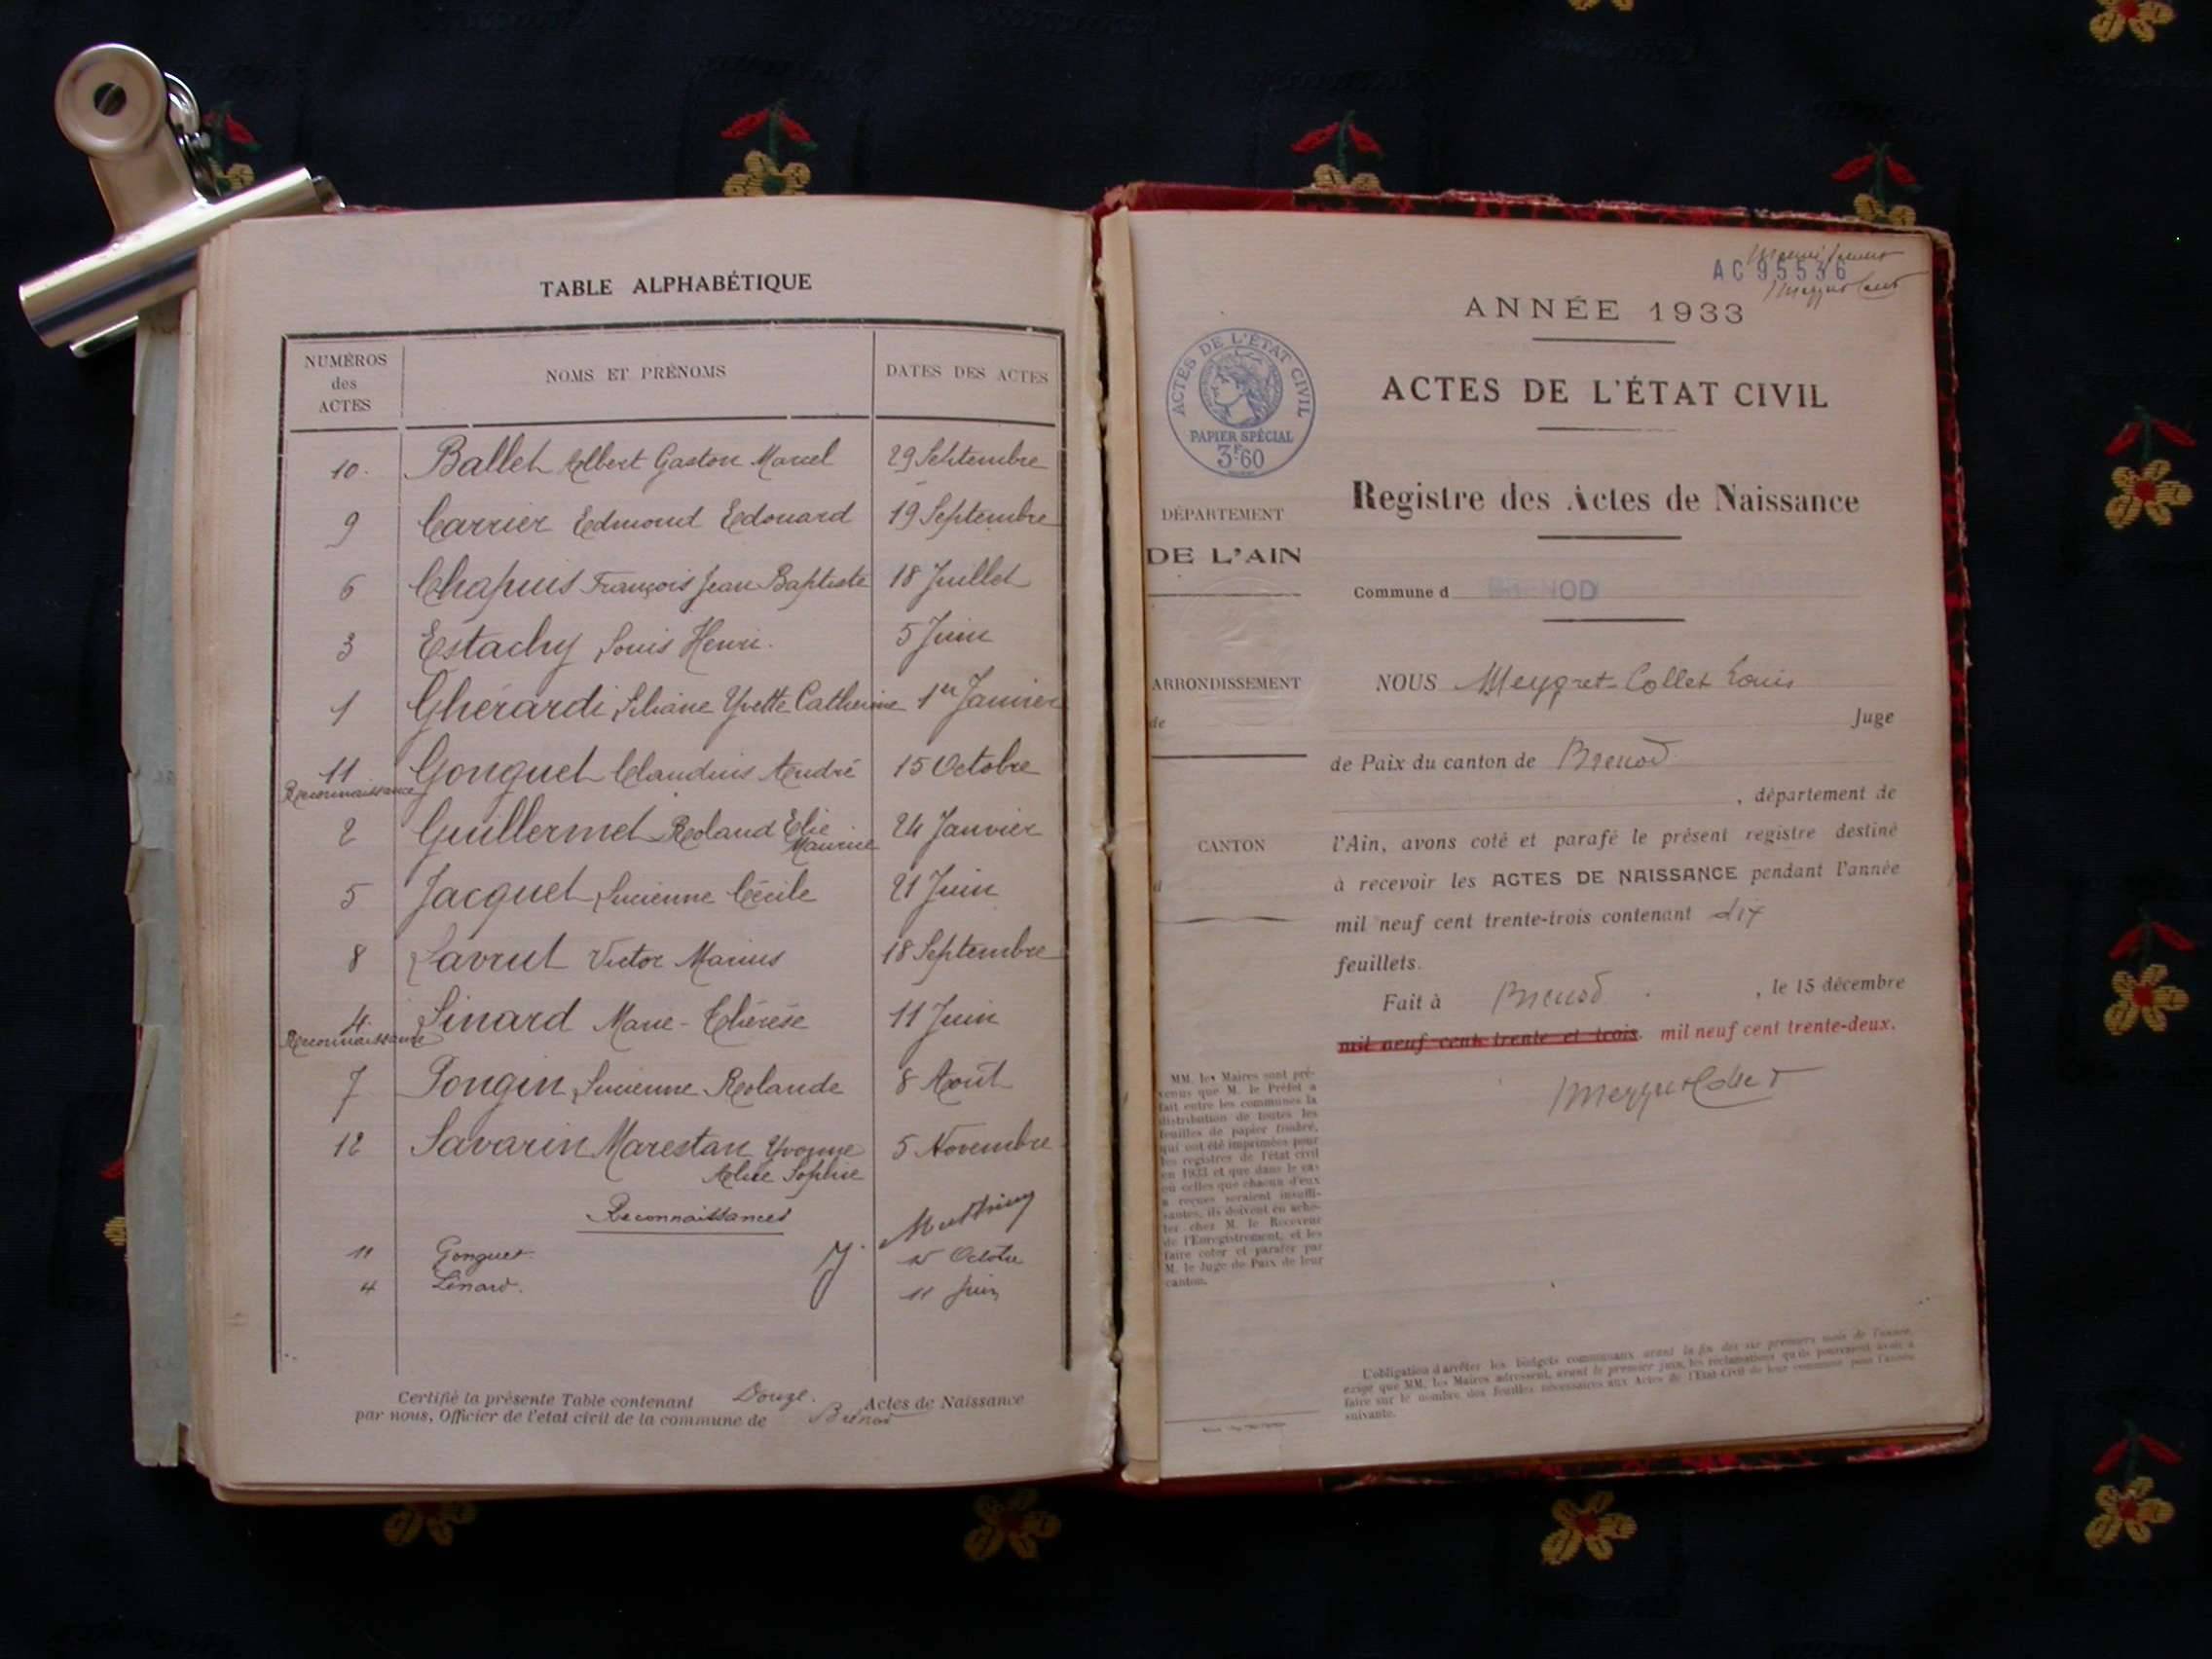 TABLE ALPHABÉTIQUE
NUMÉROS des ACTES
NOMS ET PRÉNOMS
DATES DES ACTES
10. Ballet Albert Gaston Marcel 29 Septembre
9 Carrier Edmond Edouard 19 Septembre
6 Chapuis François Jean Baptiste 18 Juillet
3 Estachy Louis Henri. 5 Juin
1 Ghérardi Liliane Yvette Catherine 1er Janvier
11 Gonguet Claudius André 15 Octobre
Reconnaissance
2 Guillermet Roland Elie 24 Janvier
Maurice
5 Jacquet Lucienne Cécile 21 Juin
8 Lavrut Victor Marius 18 Septembre
4 Linard Marie-Thérèse 11 Juin
Reconnaissance
7 Pongin Lucienne Rolande 8 Août
12 Savarin Marestan Yvonne 5 Novembre
Alice Sophie
Reconnaissances
11 Gonguet 15 Octobre
4 Linard. 11 Juin
Certifié la présente Table contenant Douze. Actes de Naissance
par nous, Officier de l'etat civil de la commune de Brénod
AC 95536
ANNÉE 1933
ACTES DE L'ÉTAT CIVIL
PAPIER SPÉCIAL
3F60
ACTES DE L'ÉTAT CIVIL
Registre des Actes de Naissance
DÉPARTEMENT
DE L'AIN
Commune d BRENOD
ARRONDISSEMENT
de
CANTON
d
NOUS Meygret-Collet Louis
Juge
de Paix du canton de Brenod
, département de
l'Ain, avons coté et parafé le présent registre destiné
à recevoir les ACTES DE NAISSANCE pendant l'année
mil neuf cent trente-trois contenant dix
feuillets.
Fait à Brenod , le 15 décembre
mil neuf cent trente et trois, mil neuf cent trente-deux.
Meygret Collet
MM. les Maires sont pré-
venus que M. le Préfet a
fait entre les communes la
distribution de toutes les
feuilles de papier timbré,
qui ont été imprimées pour
les registres de l'état civil
en 1933 et que dans le cas
où celles que chacun d'eux
a reçues seraient insuffi-
santes, ils doivent en ache-
ter chez M. le Receveur
de l'Enregistrement, et les
faire coter et parafer par
M. le Juge de Paix de leur
canton.
L'obligation d'arrêter les budgets communaux avant la fin des six premiers mois de l'année,
exige que MM. les Maires adressent, avant le premier juin, les réclamations qu'ils pourraient avoir à
faire sur le nombre des feuilles nécessaires aux Actes de l'Etat-Civil de leur commune pour l'année
suivante.